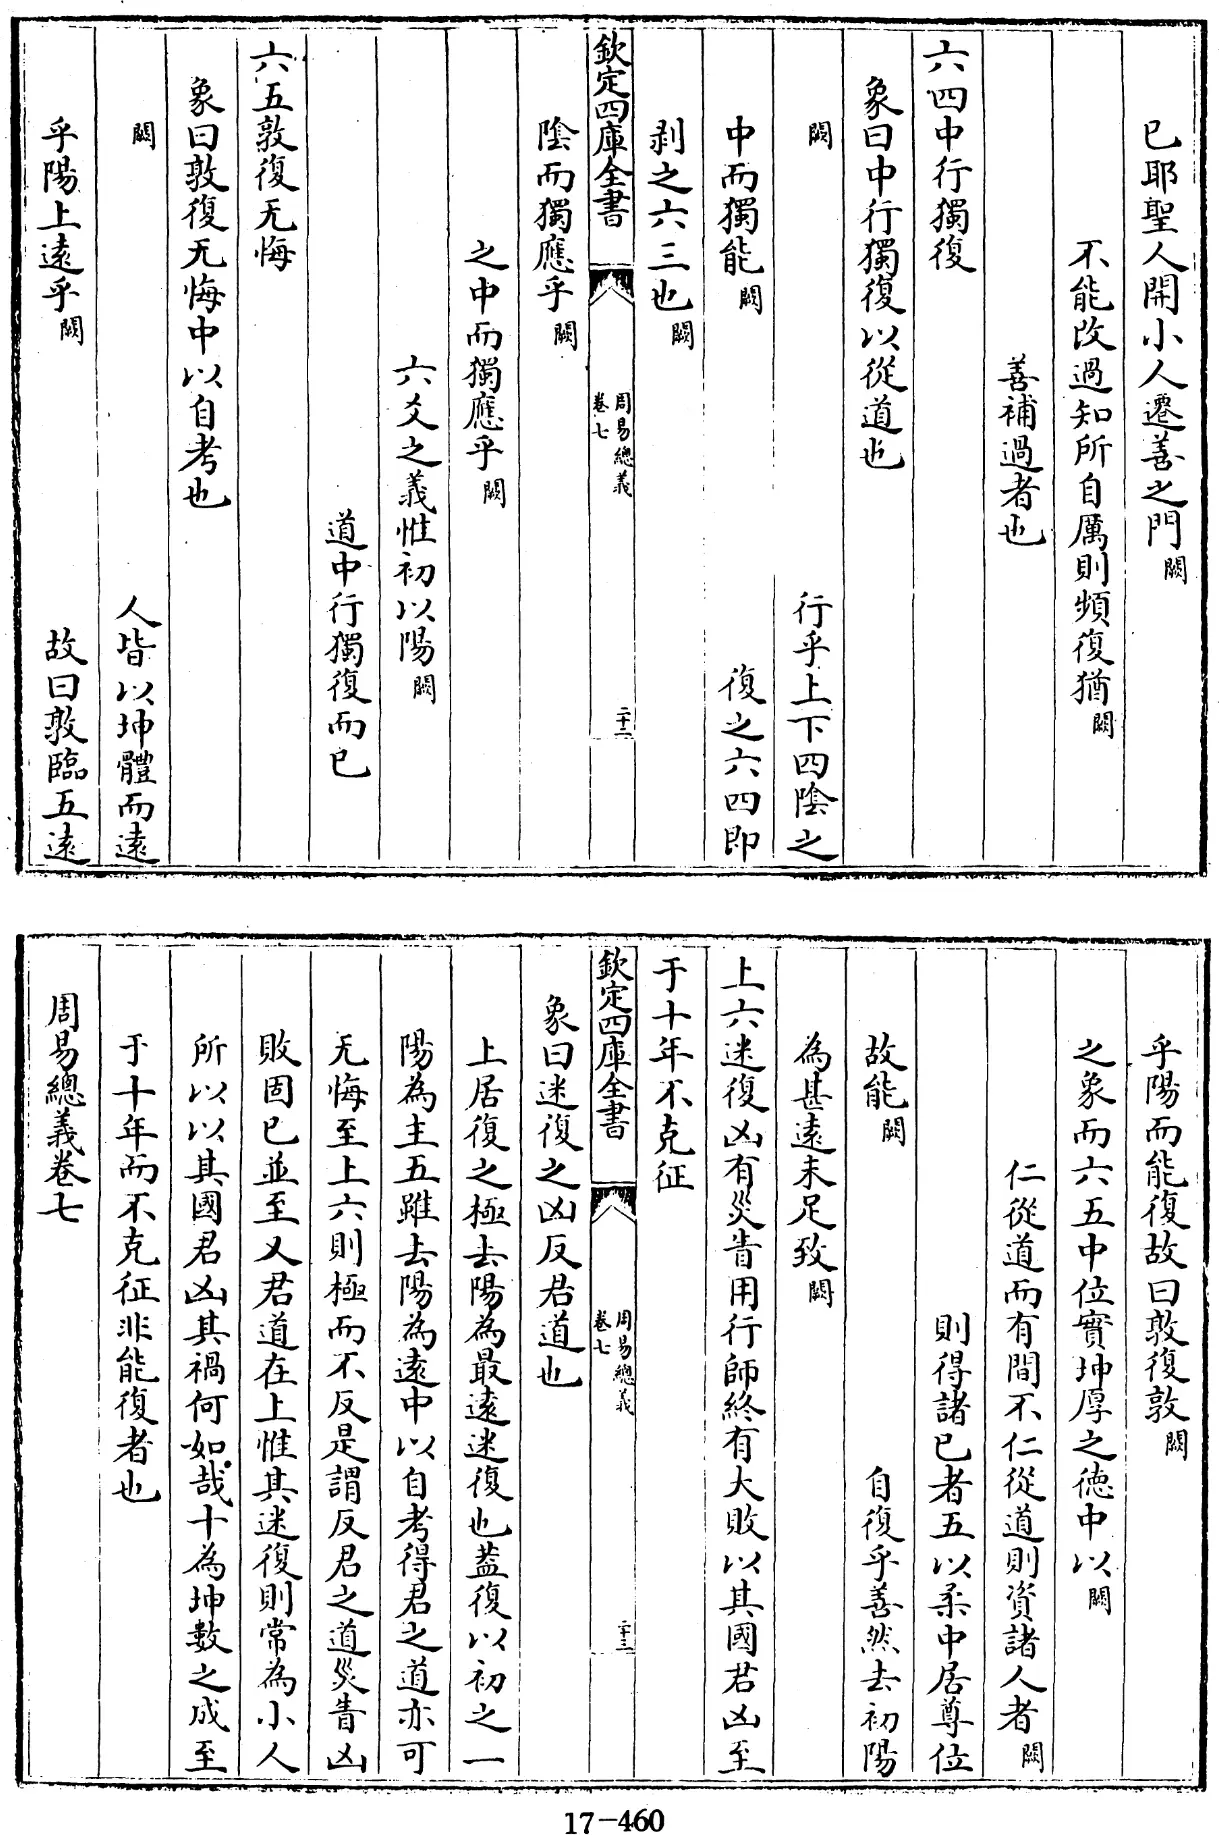 已耶聖人開小人遷善之門闕
不能改過知所自厲則頻復猶闕
善補過者也
六四中行獨復
象曰中行獨復以從道也
闕 行乎上下四陰之
中而獨能闕 復之六四即
剥之六三也闕
欽定四庫全書 周易總義卷七 二十二
陰而獨應乎闕
之中而獨應乎闕
六爻之義惟初以陽闕
道中行獨復而已
六五敦復无悔
象曰敦復无悔中以自考也
闕 人皆以坤體而遠
乎陽上遠乎闕 故曰敦臨五遠
乎陽而能復故曰敦復敦闕
之象而六五中位實坤厚之德中以闕
仁從道而有間不仁從道則資諸人者闕
則得諸已者五以柔中居尊位
故能闕 自復乎善然去初陽
為甚遠未足致闕
上六迷復凶有災眚用行師終有大敗以其國君凶至
于十年不克征
欽定四庫全書 周易總義卷七 二十三
象曰迷復之凶反君道也
上居復之極去陽為最遠迷復也葢復以初之一
陽為主五雖去陽為遠中以自考得君之道亦可
无悔至上六則極而不反是謂反君之道災眚凶
敗固已並至又君道在上惟其迷復則常為小人
所以以其國君凶其禍何如哉十為坤數之成至
于十年而不克征非能復者也
周易總義卷七
17-460